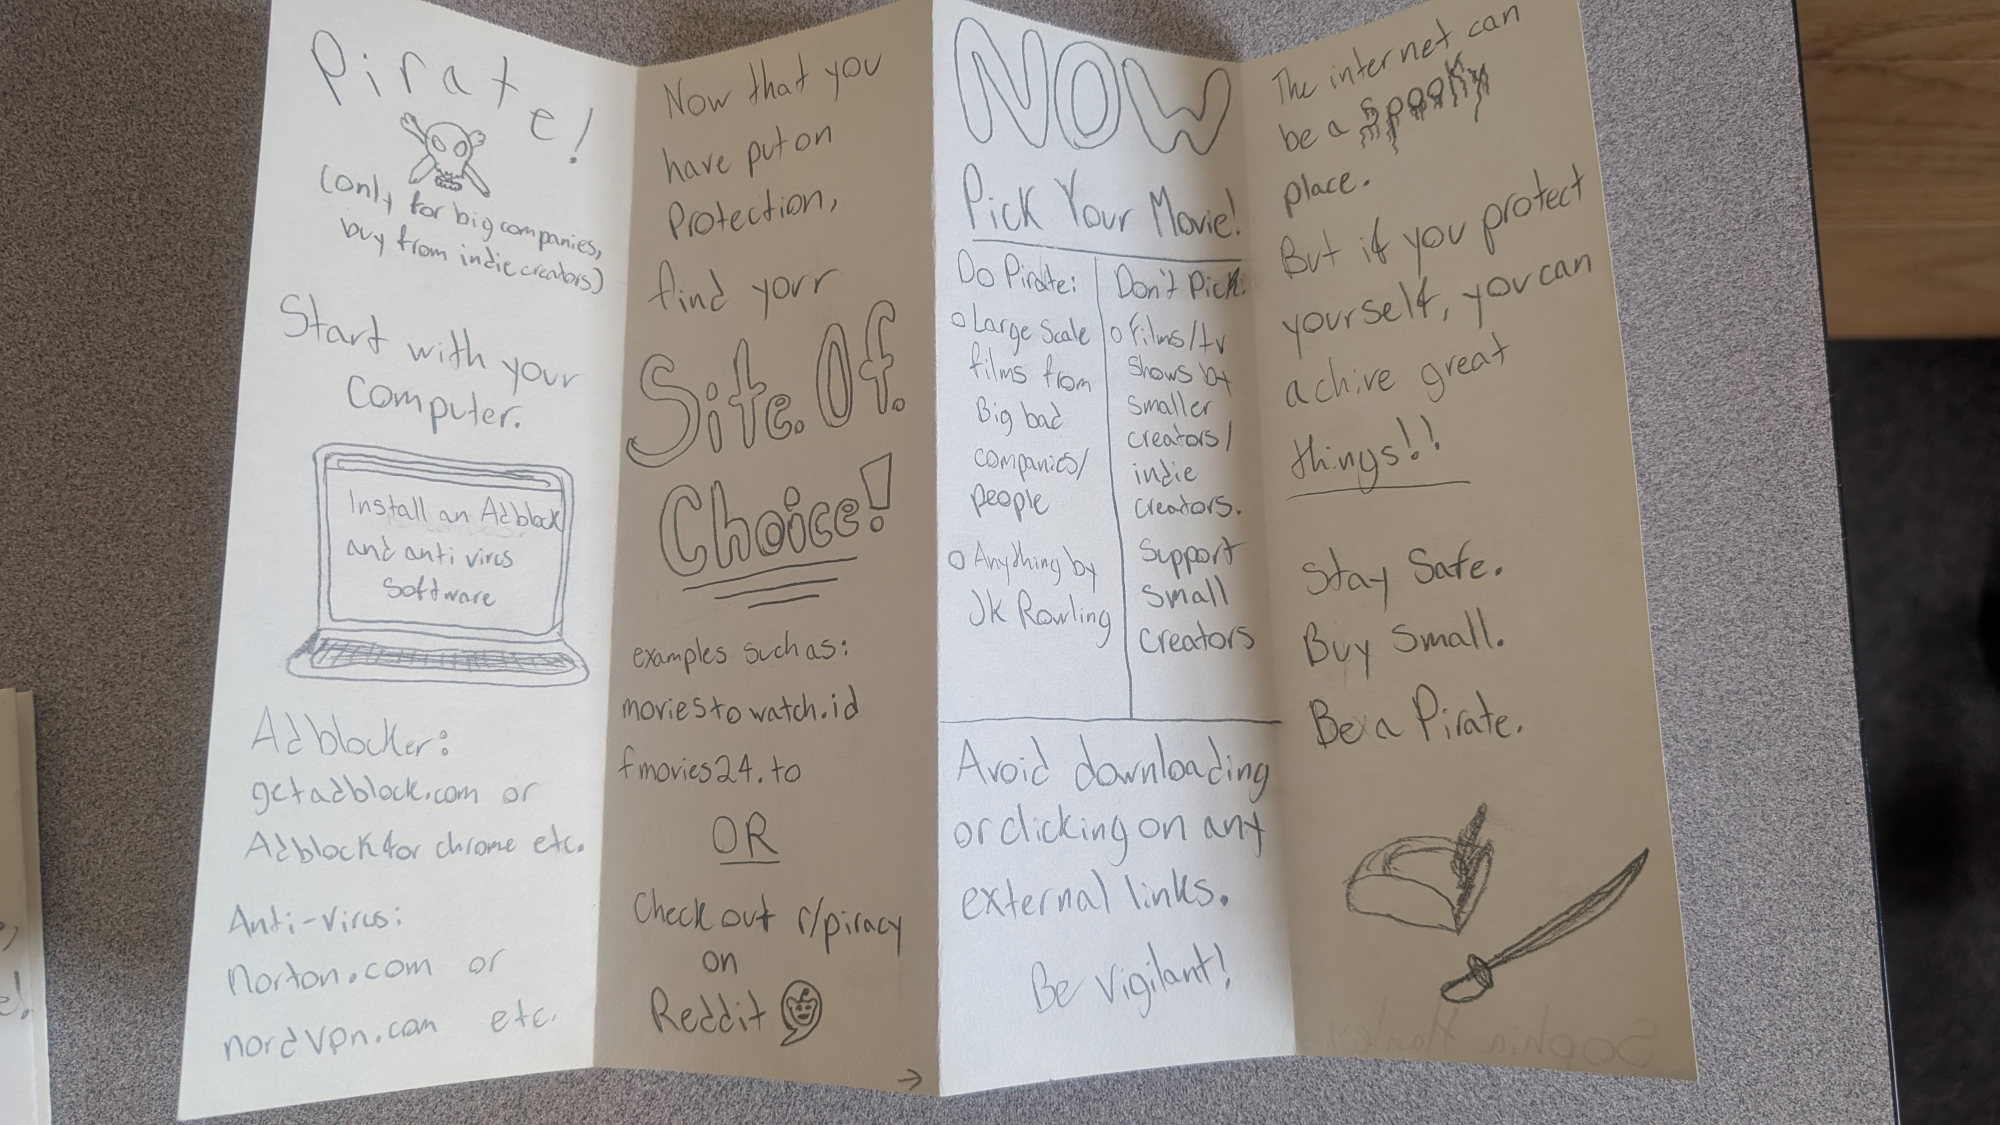 Pirate!
(only for big companies,
buy from indie creators)
Start with your
computer.
Install an Adblock
and anti virus
software
Adblocker:
getadblock.com or
Adblock for chrome etc.
Anti-virus:
norton.com or
nordvpn.com etc.
Now that you
have put on
Protection,
find yorr
Site. Of.
Choice!
examples such as:
moviestowatch.id
fmovies24.to
OR
Check out r/piracy
on
Reddit
→
NOW
Pick Your Movie!
Do Pirate:
o Large Scale
films from
Big bad
companies/
people
o Anything by
JK Rowling
Don't Pick:
o films/tv
shows by
smaller
creators/
indie
creators.
Support
small
creators
Avoid downloading
or clicking on any
external links.
Be vigilant!
The internet can
be a spooky
place.
But if you protect
yourself, you can
achive great
things!!
Stay Safe.
Buy Small.
Be a Pirate.